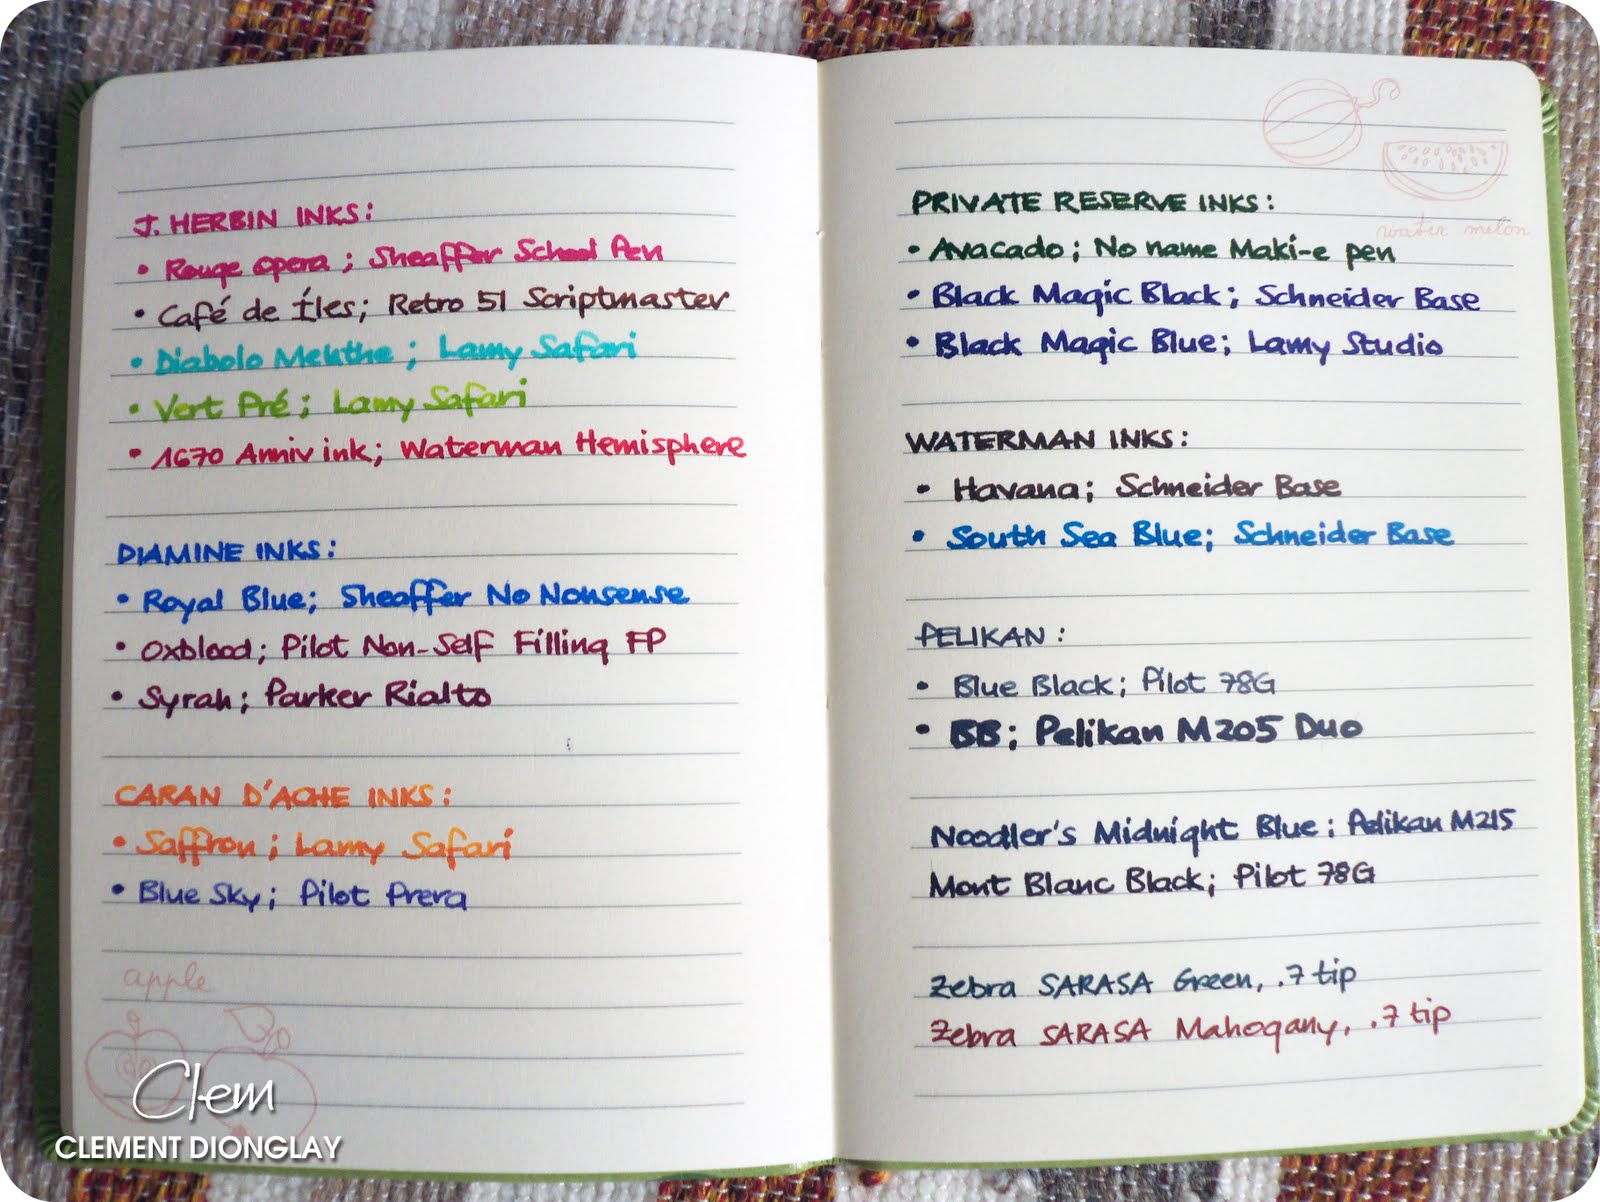 J. HERBIN INKS:
• Rouge Opera; Sheaffer School Pen
• Café de Íles; Retro 51 Scriptmaster
• Diabolo Menthe; Lamy Safari
• Vert Pré; Lamy Safari
• 1670 Anniv ink; Waterman Hemisphere
DIAMINE INKS:
• Royal Blue; Sheaffer No Nonsense
• Oxblood; Pilot Non-Self Filling FP
• Syrah; Parker Rialto
CARAN D'ACHE INKS:
• Saffron; Lamy Safari
• Blue Sky; Pilot Prera
apple
Clem
CLEMENT DIONGLAY
water melon
PRIVATE RESERVE INKS:
• Avacado; No name Maki-e pen
• Black Magic Black; Schneider Base
• Black Magic Blue; Lamy Studio
WATERMAN INKS:
• Havana; Schneider Base
• South Sea Blue; Schneider Base
PELIKAN:
• Blue Black; Pilot 78G
• BB; Pelikan M205 Duo
Noodler's Midnight Blue; Pelikan M215
Mont Blanc Black; Pilot 78G
Zebra SARASA Green, .7 tip
Zebra SARASA Mahogany, .7 tip